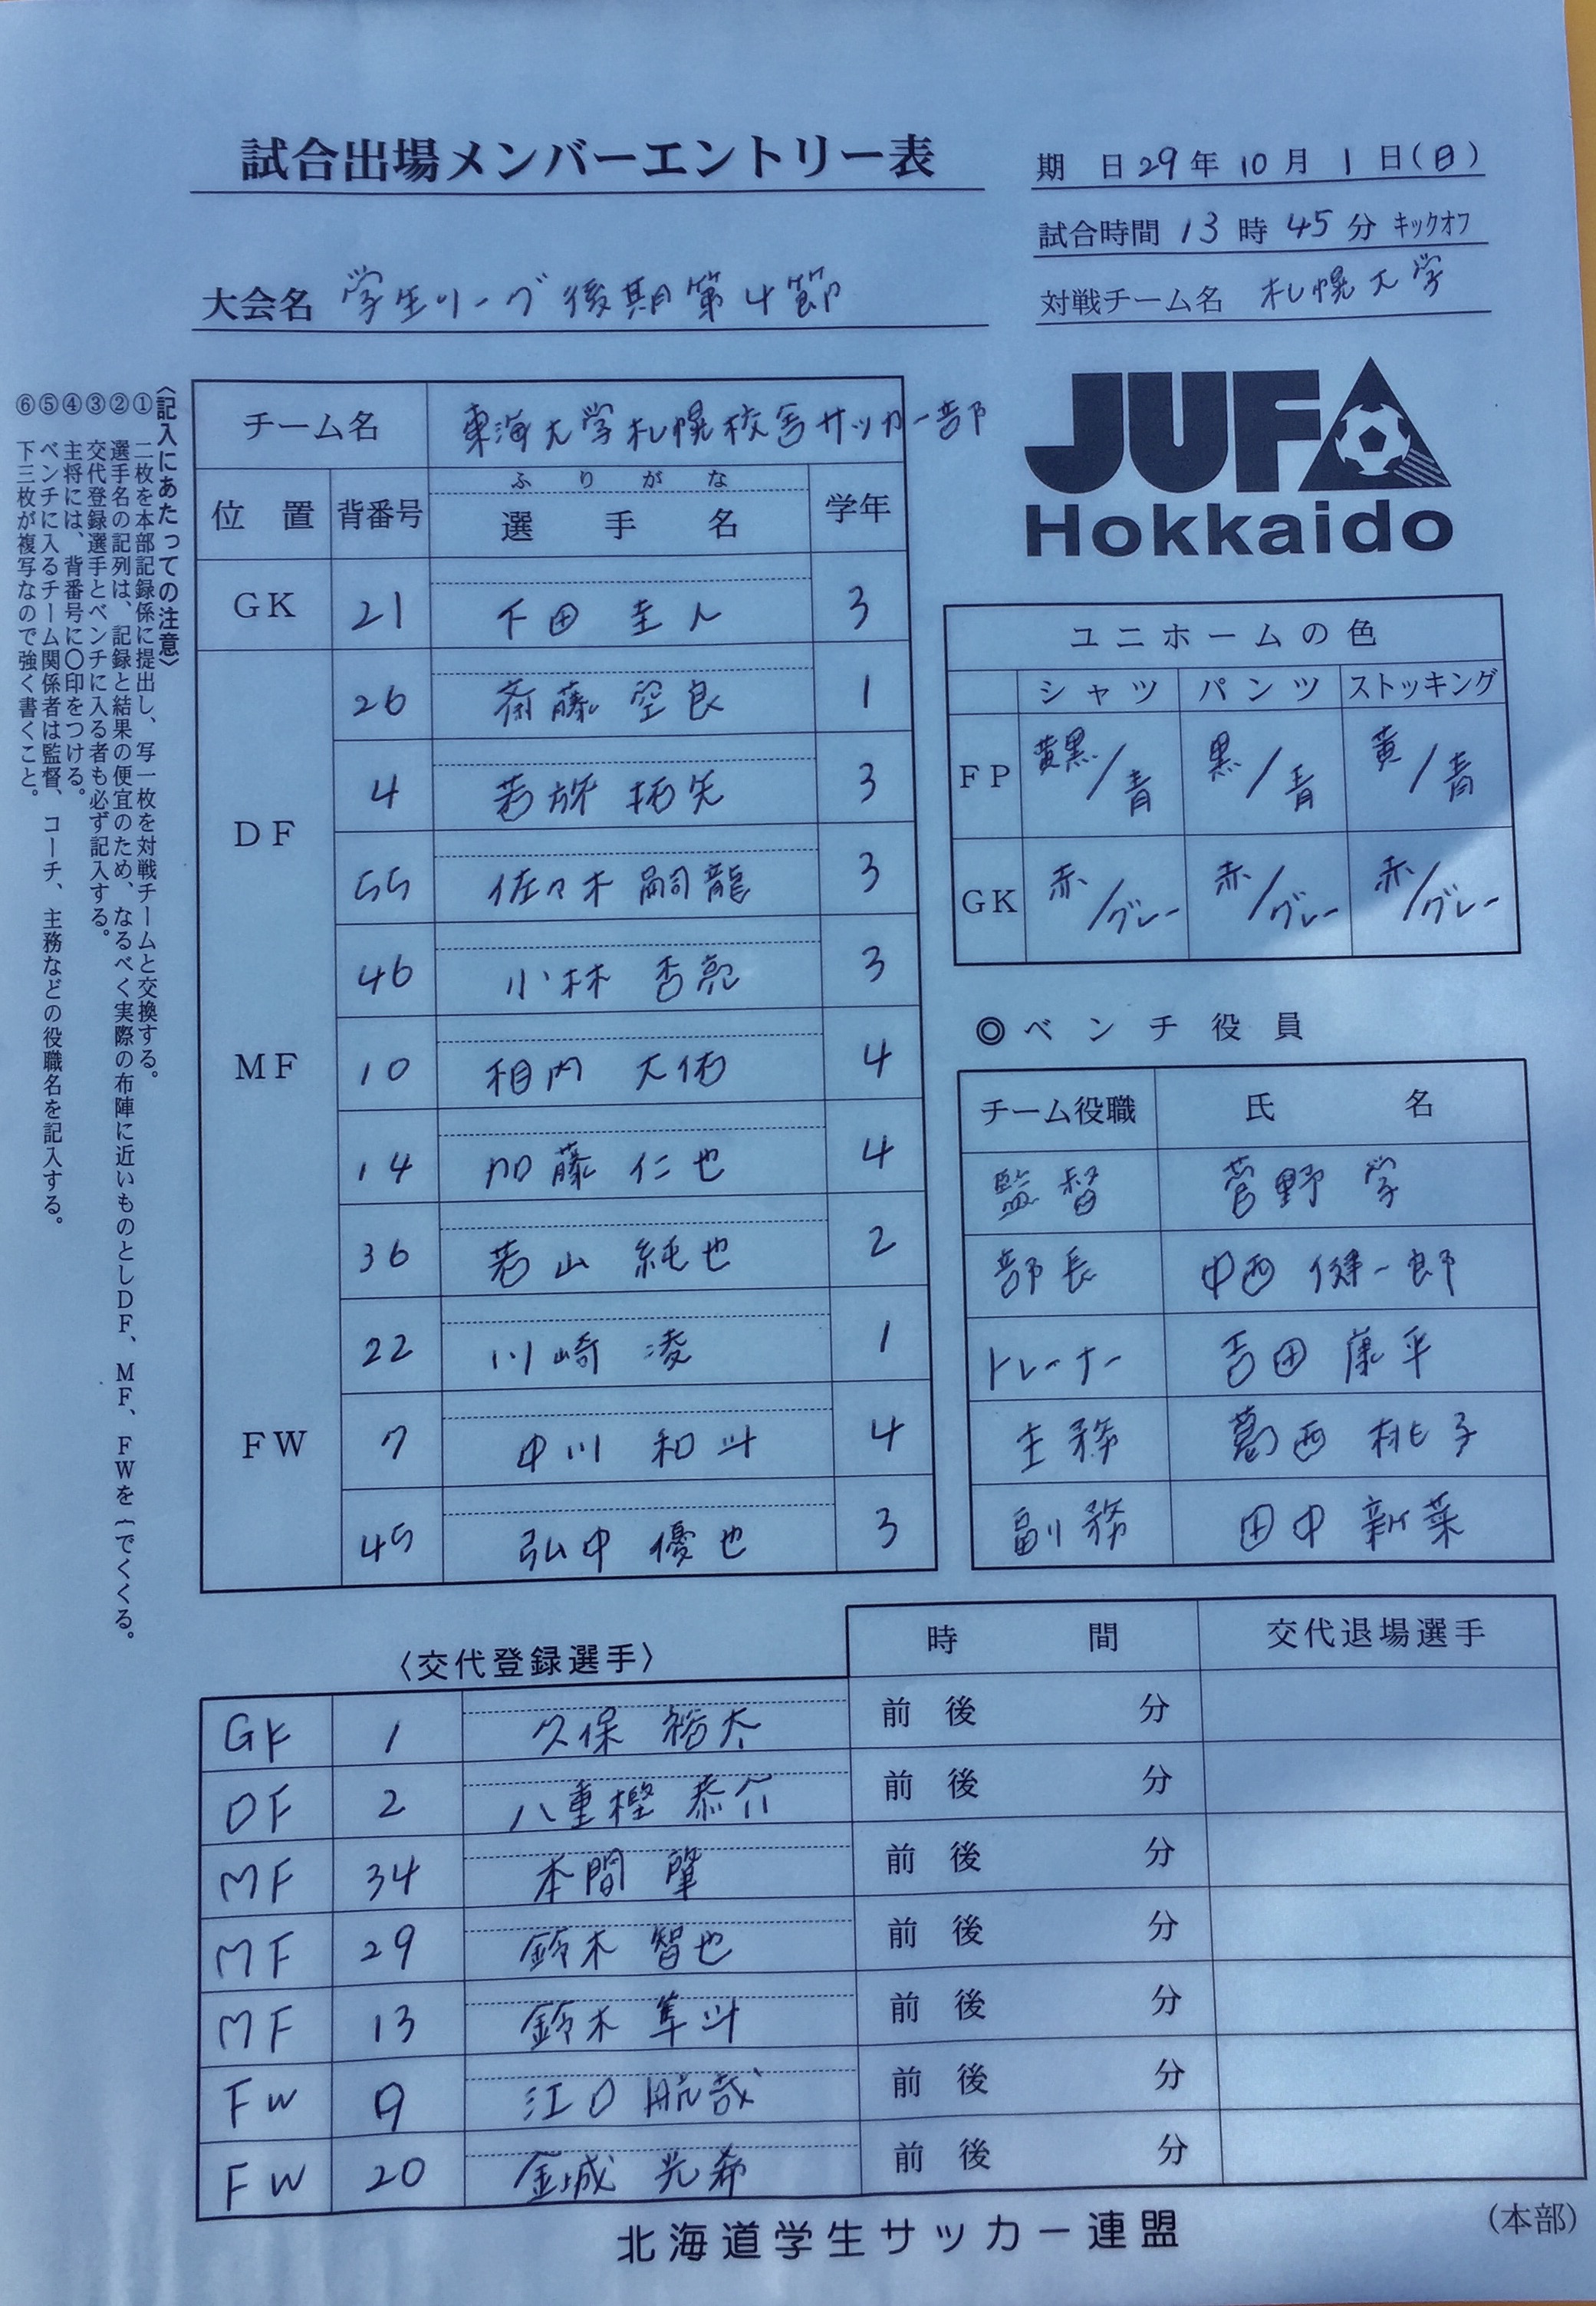 試合出場メンバーエントリー表
期 日 29年 10月 1日(日)
試合時間 13時 45分 キックオフ
大会名 学生リーグ後期第4節
対戦チーム名 札幌大学
JUFA
Hokkaido
チーム名 東海大学札幌校舎サッカー部
位 置 背番号 ふりがな 選手名 学年
GK 21 下田 圭人 3
26 斎藤 空良 1
4 若旅 拓矢 3
DF
55 佐々木 嗣龍 3
46 小林 杏亮 3
MF 10 相内 大佑 4
14 加藤 仁也 4
36 若山 純也 2
22 川崎 凌 1
FW 7 中川 和斗 4
45 弘中 優也 3
ユニホームの色
シャツ パンツ ストッキング
FP 黄黒/青 黒/青 黄/青
GK 赤/グレー 赤/グレー 赤/グレー
◎ベンチ役員
チーム役職 氏 名
監督 菅野 学
部長 中西 健一郎
トレーナー 吉田 康平
主務 葛西 桃子
副務 田中 新菜
〈交代登録選手〉 時 間 交代退場選手
GK 1 久保 裕太 前 後 分
DF 2 八重樫 恭介 前 後 分
MF 34 本間 肇 前 後 分
MF 29 鈴木 智也 前 後 分
MF 13 鈴木 隼斗 前 後 分
FW 9 江口 航哉 前 後 分
FW 20 金城 光希 前 後 分
北海道学生サッカー連盟
(本部)
〈記入にあたっての注意〉
① 二枚を本部記録係に提出し、写一枚を対戦チームと交換する。
② 選手名の記列は、記録と結果の便宜のため、なるべく実際の布陣に近いものとしDF、MF、FWを{でくくる。
③ 交代登録選手とベンチに入る者も必ず記入する。
④ 主将には、背番号に〇印をつける。
⑤ ベンチに入るチーム関係者は監督、コーチ、主務などの役職名を記入する。
⑥ 下三枚が複写なので強く書くこと。